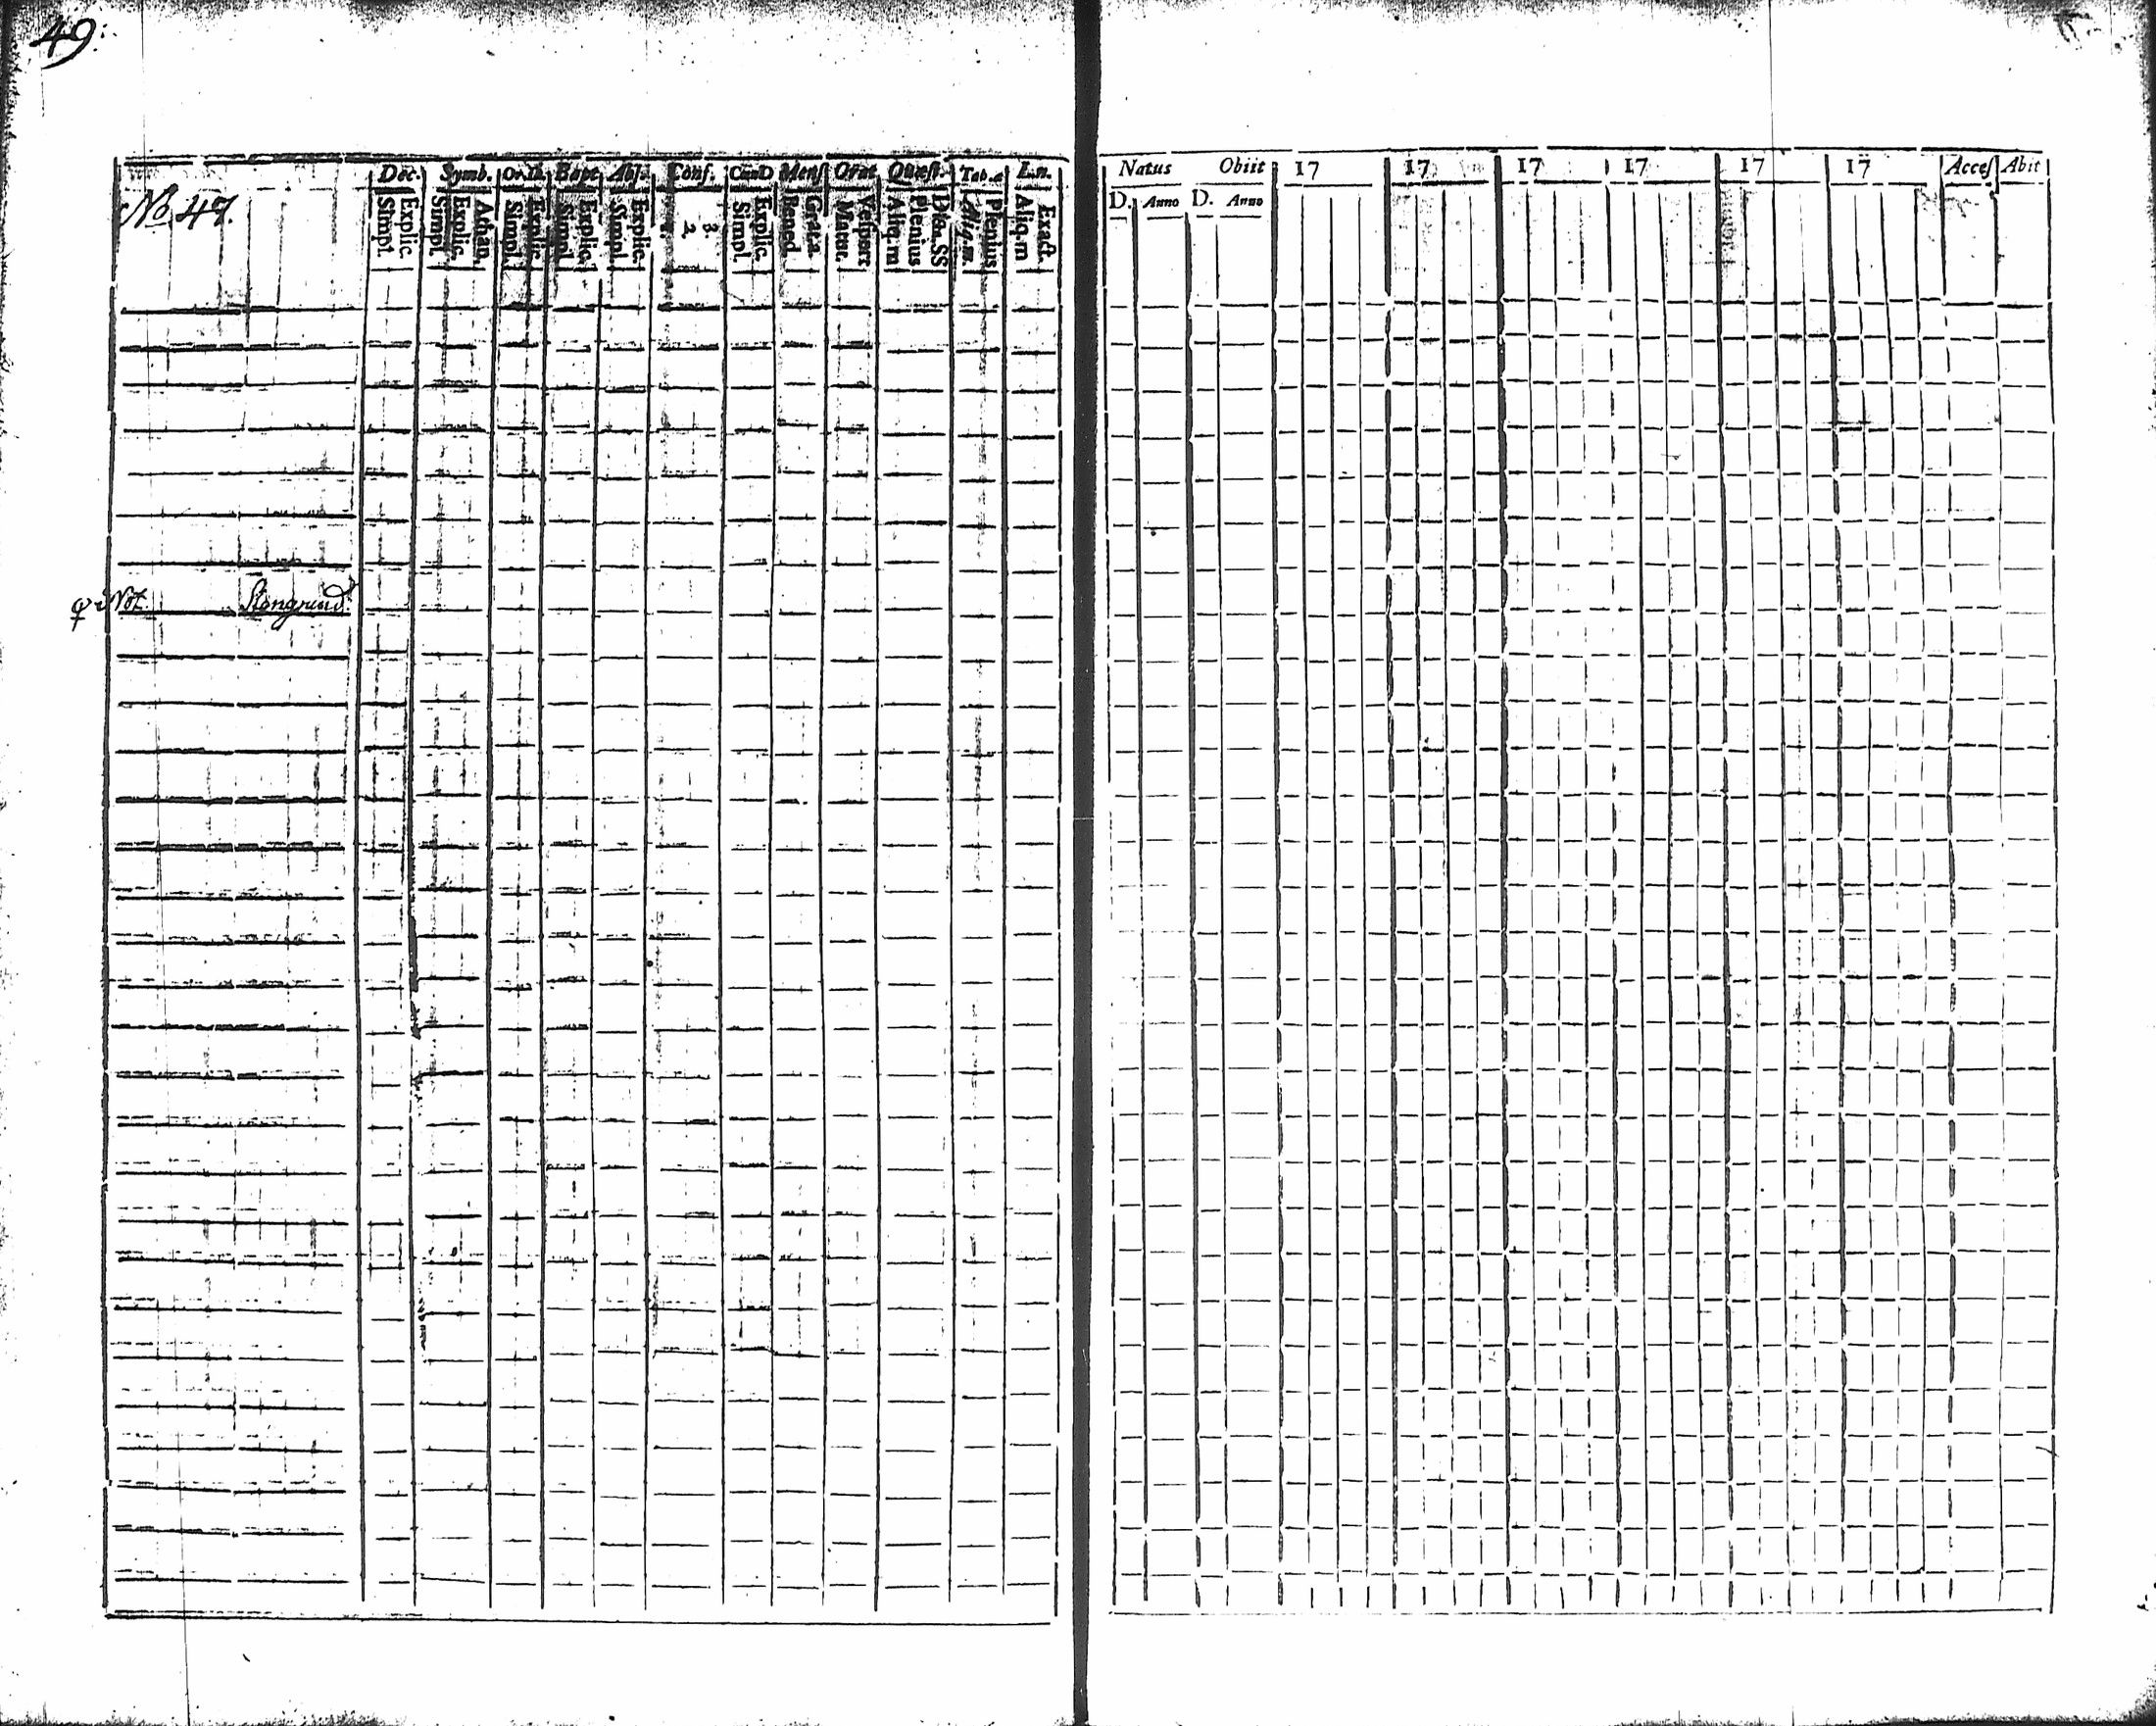 49:
Dec. Symb. Or. D. Bapt. Abs. Conf. CœnaD Mens Orat Quæst. Tab.æ L.n.
No. 47.
Explic. Simpl. Athan. Explic. Simpl. Explic. Simpl. Explic. Simpl. Explic. Simpl. 3. 2. Explic. Simpl. Grat.a Bened. Vespert. Matut. Dicta SS Plenius Aliq.m Plenius Aliq.m. Exact. Aliq.m
Not. Stongrund
Natus Obiit 17 17 17 17 17 17 Acces Abit
D. Anno D. Anno